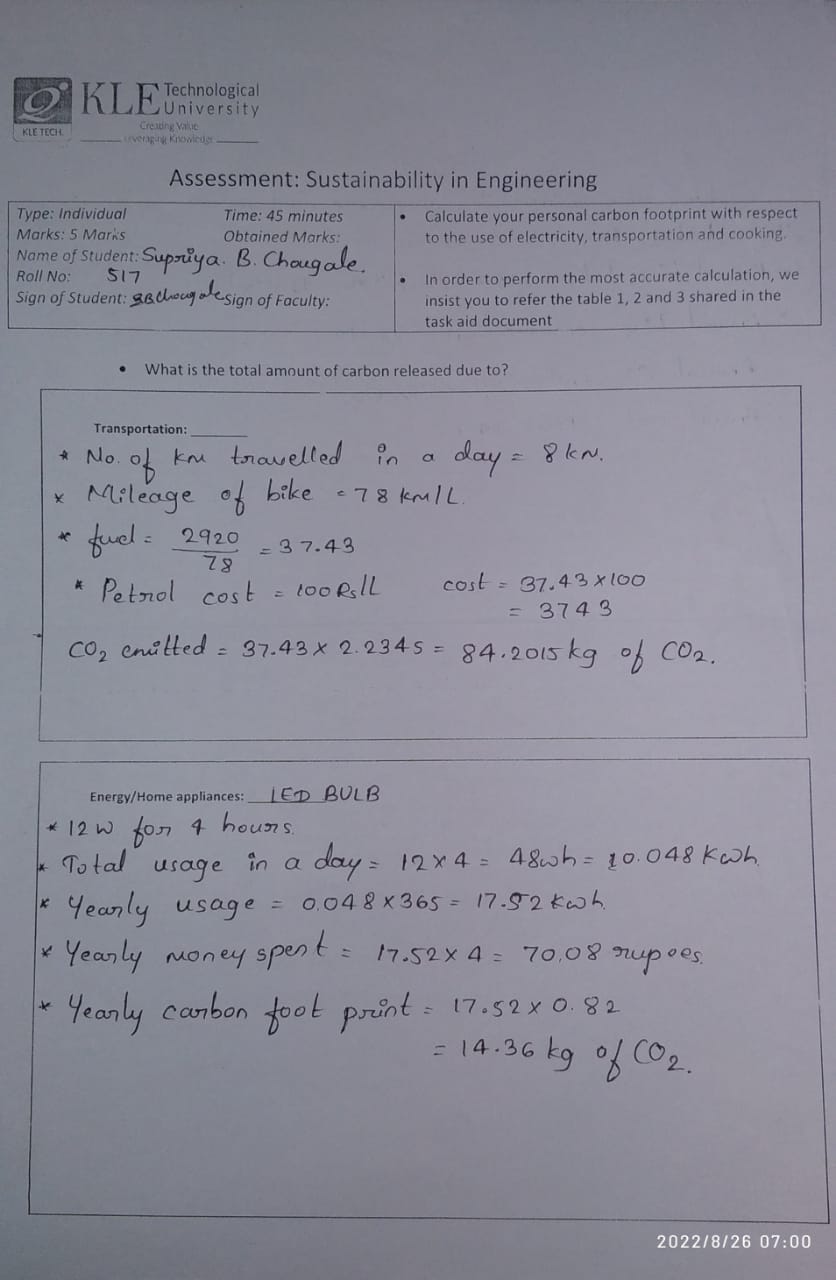 KLE Technological University
Creating Value
Leveraging Knowledge
KLE TECH.
Assessment: Sustainability in Engineering
Type: Individual Time: 45 minutes
Marks: 5 Marks Obtained Marks:
Name of Student: Supriya. B. Chougale.
Roll No: 517
Sign of Student: SBChougale Sign of Faculty:
• Calculate your personal carbon footprint with respect
to the use of electricity, transportation and cooking.
• In order to perform the most accurate calculation, we
insist you to refer the table 1, 2 and 3 shared in the
task aid document
• What is the total amount of carbon released due to?
Transportation:
* No. of km travelled in a day = 8 km.
* Mileage of bike = 78 km/L.
* fuel = 2920/78 = 37.43
* Petrol cost = 100 Rs/L cost = 37.43 × 100
= 3743
CO2 emitted = 37.43 × 2.2345 = 84.2015 kg of CO2.
Energy/Home appliances: LED BULB
* 12 w for 4 hours.
* Total usage in a day = 12 × 4 = 48wh = 0.048 Kwh.
* Yearly usage = 0.048 × 365 = 17.52 kwh.
* Yearly money spent = 17.52 × 4 = 70.08 rupees.
* Yearly carbon foot print = 17.52 × 0.82
= 14.36 kg of CO2.
2022/8/26 07:00